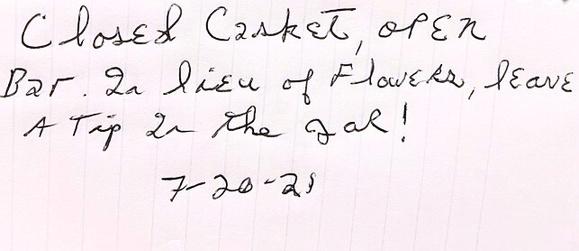 Closed Casket, open
Bar. In lieu of Flowers, leave
A Tip In the Jar!
7-20-21